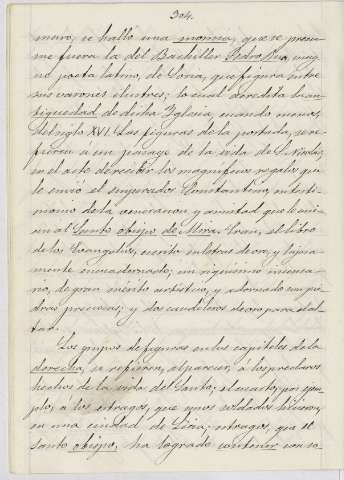 304.
muro, se halló una momia, que se presu-
me fuera la del Bachiller Pedro Rua, insig-
ne poeta latino, de Soria, que figura entre
sus varones ilustres; lo cual acredita la an-
tigüedad de dicha Iglesia, cuando menos,
del siglo XVI. Las figuras de la portada, se re-
fieren á un pasage de la vida de S. Nicolás,
en el acto de recibir los magníficos regalos que
le envió el emperador Constantino, en testi-
monio de la veneracion y amistad que le uni-
an al Santo obispo de Mira. Eran, el libro
de los Evangelios, escrito en letras de oro, y lujosa-
mente encuadernado; un riquisimo incensa-
rio, de gran mérito artistico, y adornado con pie-
dras preciosas; y dos candeleros de oro para el al-
tar.
Los grupos de figuras en los capiteles de la
derecha, se refieren, al parecer, á los preclaros
hechos de la vida del Santo; el cuarto, por ejem-
plo, á los estragos, que unos soldados hicieron
en una ciudad de Licia; estragos, que el
Santo obispo, ha logrado contener con so-